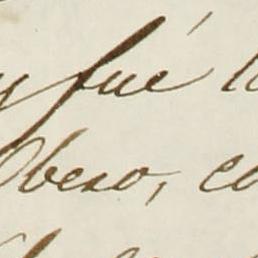 y fué
Obeso, co